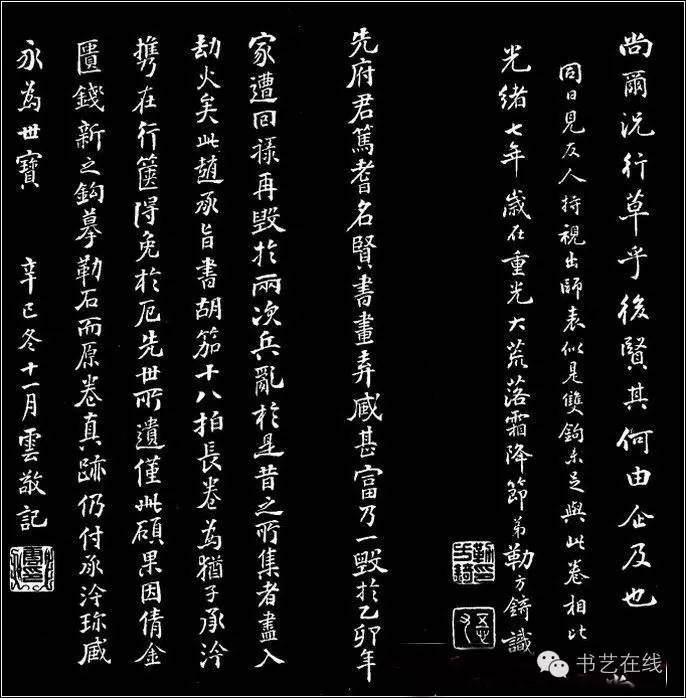 尚爾況行草乎後賢其何由企及也
同日見友人持視出師表似是雙鉤未足與此卷相比
光緒七年歲在重光大荒落霜降節弟勒方錡識
先府君篤耆名賢書畫弆臧甚富乃一毀於乙卯年
家遭回祿再毀於兩次兵亂於是昔之所集者盡入
劫火矣此趙承旨書胡笳十八拍長卷為猶子承泠
攜在行篋得免於厄先世所遺僅此碩果因倩金
匱錢新之鉤摹勒石而原卷真跡仍付承泠珍臧
永為世寶 辛巳冬十一月雲敬記
书艺在线